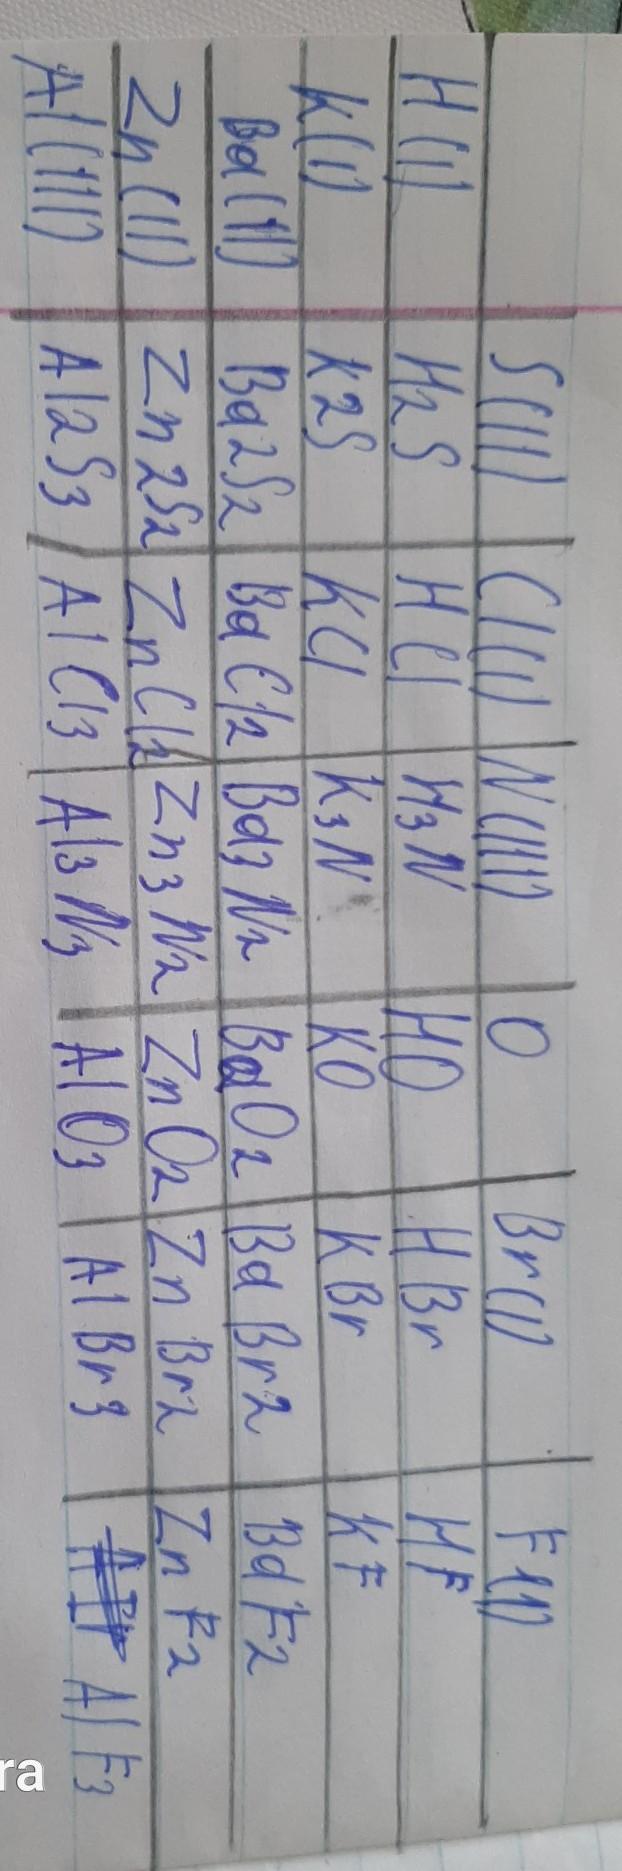 S(II) Cl(I) N(III) O Br(I) F(I)
H(I) H2S HCl H3N HO HBr HF
K(I) K2S KCl K3N KO KBr KF
Ba(II) Ba2S2 BaCl2 Ba3N2 BaO2 BaBr2 BaF2
Zn(II) Zn2S2 ZnCl2 Zn3N2 ZnO2 ZnBr2 ZnF2
Al(III) Al2S3 AlCl3 Al3N3 AlO3 AlBr3 AlF3
ra